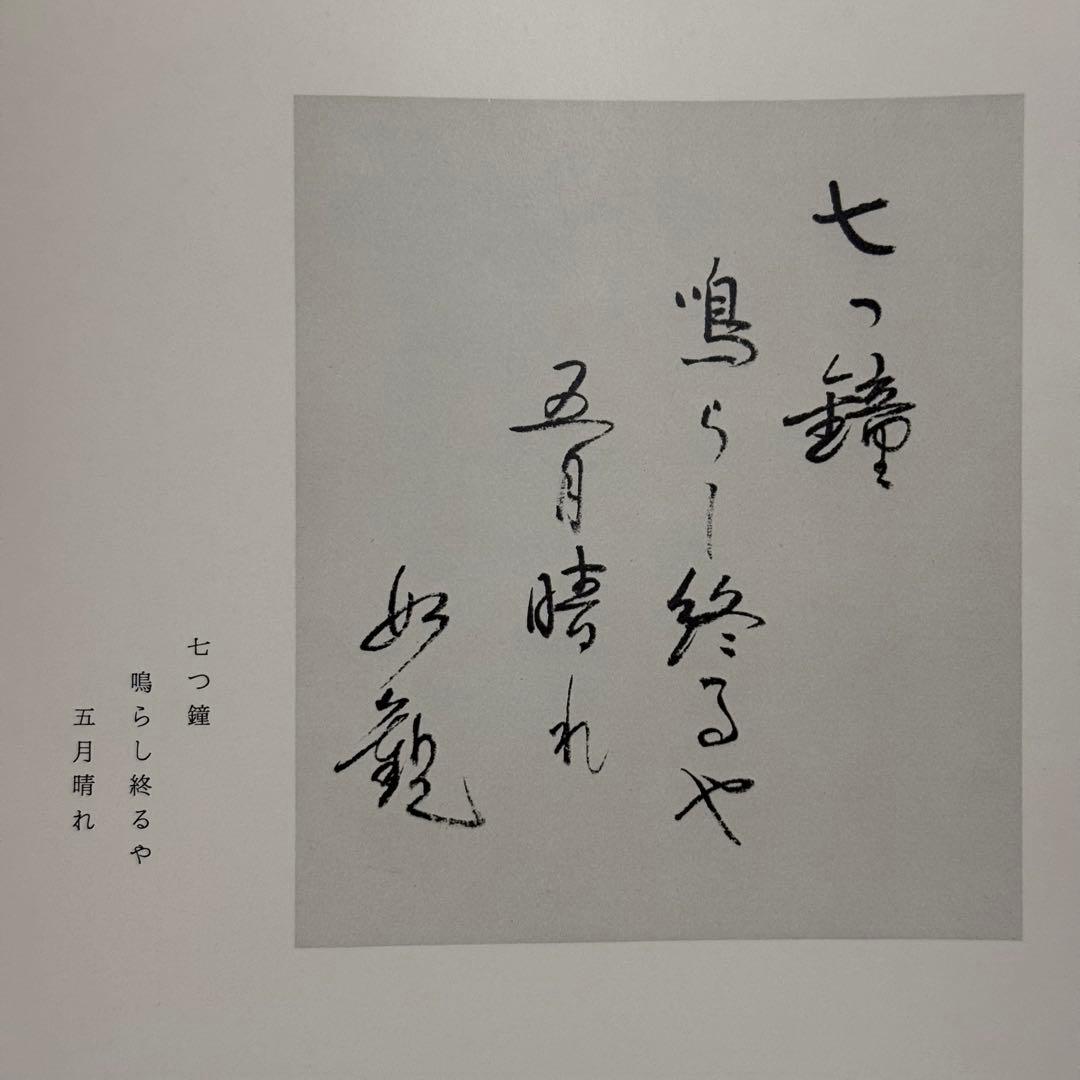 七つ鐘
鳴らし終るや
五月晴れ
如観
七つ鐘
鳴らし終るや
五月晴れ